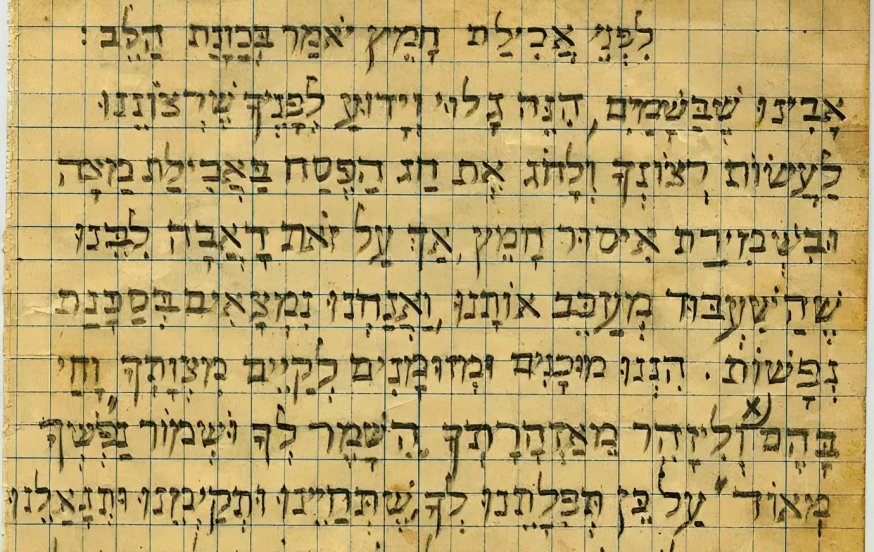 לִפְנֵי אֲכִילַת חָמֵץ יֹאמַר בְּכַוָּנַת הַלֵּב :
אָבִינוּ שֶׁבַּשָּׁמַיִם, הִנֵּה גָלוּי וְיָדוּעַ לְפָנֶיךָ שֶׁרְצוֹנֵנוּ
לַעֲשׂוֹת רְצוֹנְךָ וְלָחֹג אֶת חַג הַפֶּסַח בַּאֲכִילַת מַצָּה
וּבִשְׁמִירַת אִיסוּר חָמֵץ, אַךְ עַל זֹאת דָאֲבָה לִבֵּנוּ
שֶׁהַשִּׁעְבּוּד מְעַכֵּב אוֹתָנוּ, וַאֲנַחְנוּ נִמְצָאִים בְּסַכָּנַת
נְפָשׁוֹת. הִנְנוּ מוּכָנִים וּמְזוּמָנִים לְקַיֵּים מִצְוֹתֶךָ "וָחַי
בָּהֶם" וְלִיזָהֵר מֵאַזְהָרָתְךָ, הִשָּׁמֶר לְךָ וּשְׁמוֹר נַפְשְׁךָ
מְאוֹד" עַל כֵּן תְּפִלָּתֵנוּ לְךָ, שֶׁתְּחַיֵּינוּ וּתְקַיְּמֵנוּ וְתִגְאָלֵנוּ